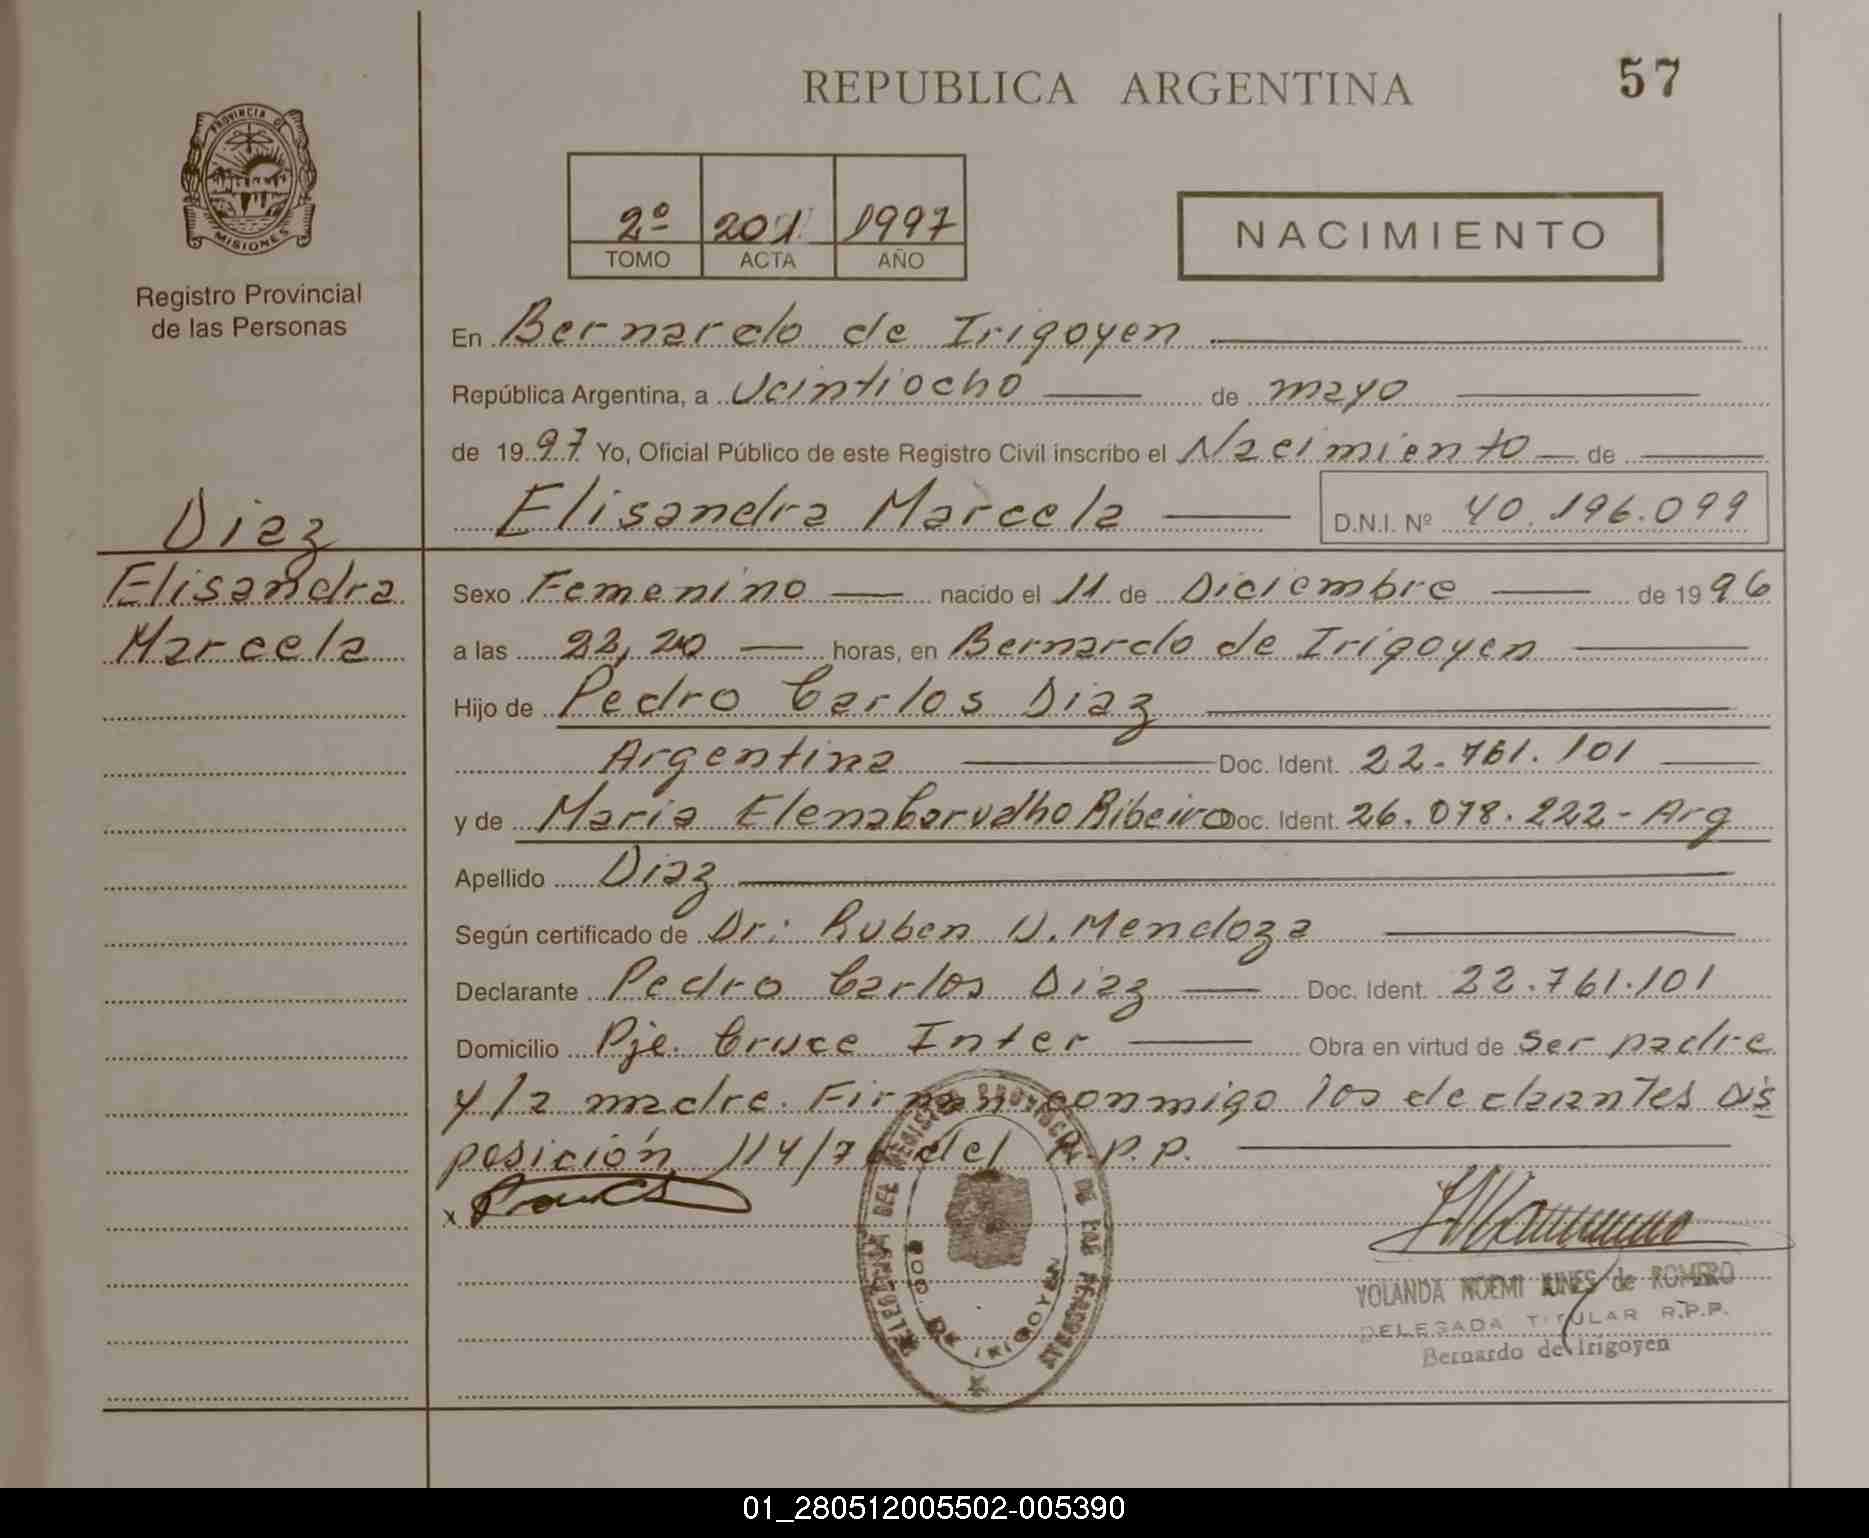 REPUBLICA ARGENTINA
57
PROVINCIA DE
MISIONES
Registro Provincial
de las Personas
2º 201 1997
TOMO ACTA AÑO
NACIMIENTO
En Bernardo de Irigoyen
República Argentina, a Veintiocho de mayo
de 1997 Yo, Oficial Público de este Registro Civil inscribo el Nacimiento de
Elisandra Marcela D.N.I. Nº 40.196.099
Diaz
Elisandra
Marcela
Sexo Femenino nacido el 11 de Diciembre de 1996
a las 22,20 horas, en Bernardo de Irigoyen
Hijo de Pedro Carlos Diaz
Argentina Doc. Ident. 22.761.101
y de Maria Elena Carvalho Ribeiro Doc. Ident. 26.078.222 - Arg
Apellido Diaz
Según certificado de Dr: Ruben D. Mendoza
Declarante Pedro Carlos Diaz Doc. Ident. 22.761.101
Domicilio Pje. Cruce Inter Obra en virtud de ser padre
y la madre. Firman conmigo los declarantes Dis
posición 114/76 del R.P.P.
x
DELEGACIA DEL REGISTRO PROVINCIAL DE LAS PERSONAS
BDO. DE IRIGOYEN
YOLANDA NOEMI de ROMERO
DELEGADA TITULAR R.P.P.
Bernardo de Irigoyen
01_280512005502-005390